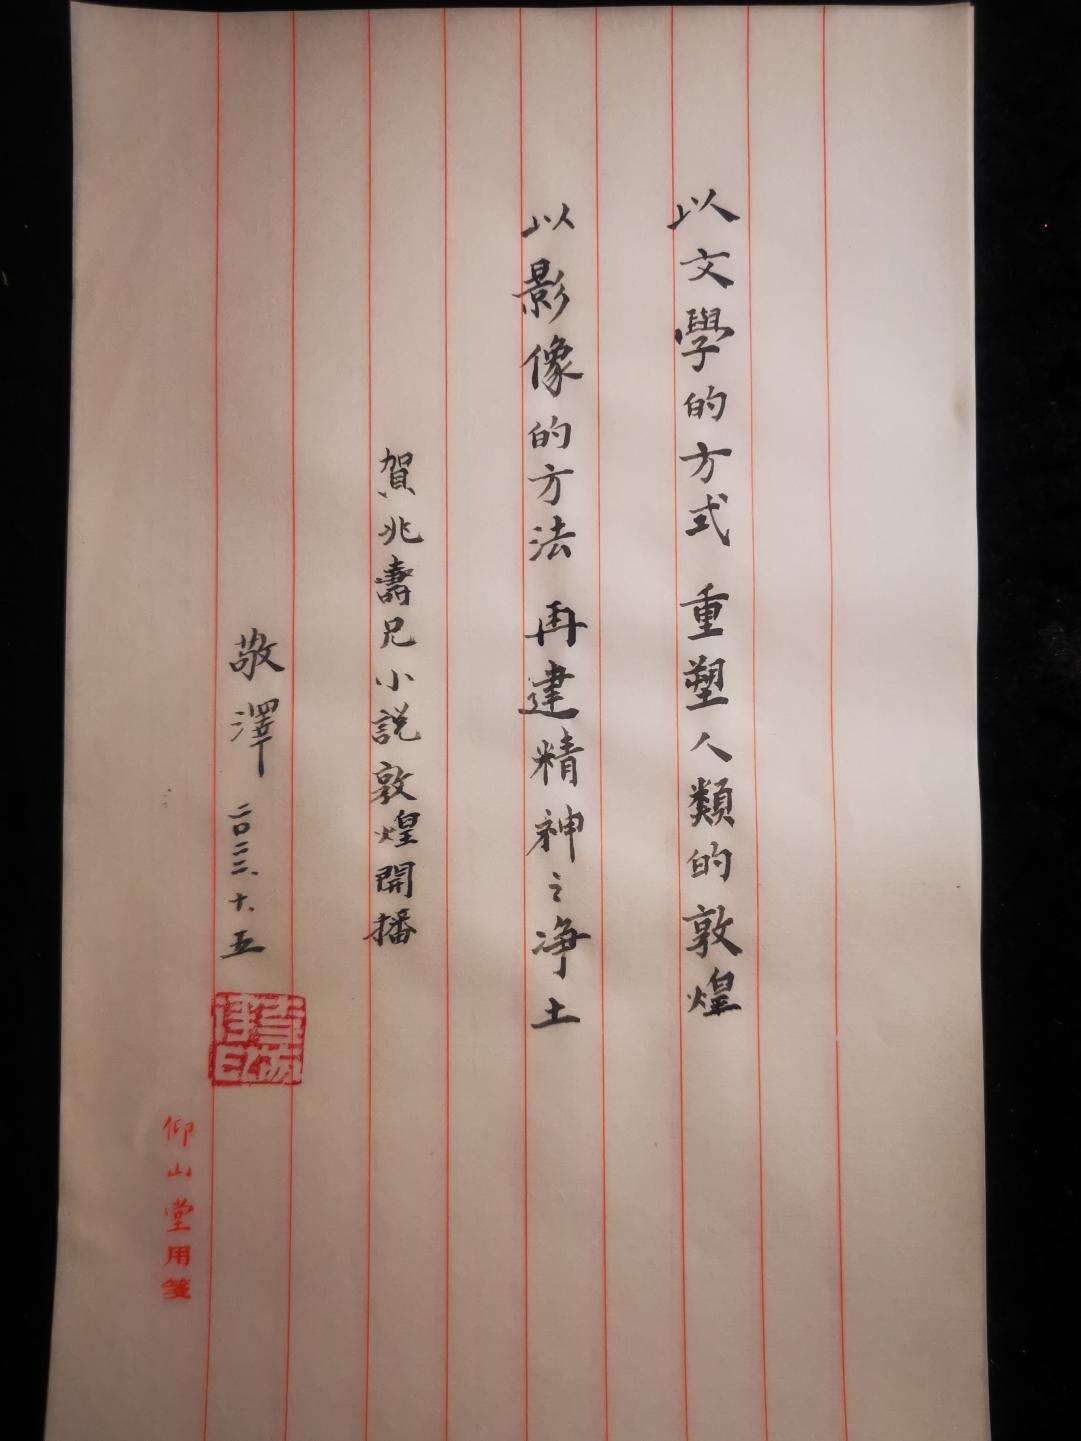 以文學的方式 重塑人類的敦煌
以影像的方法 再建精神之净土
賀兆壽兄小説敦煌開播
敬澤 二〇二二、十、五
仰山堂用箋